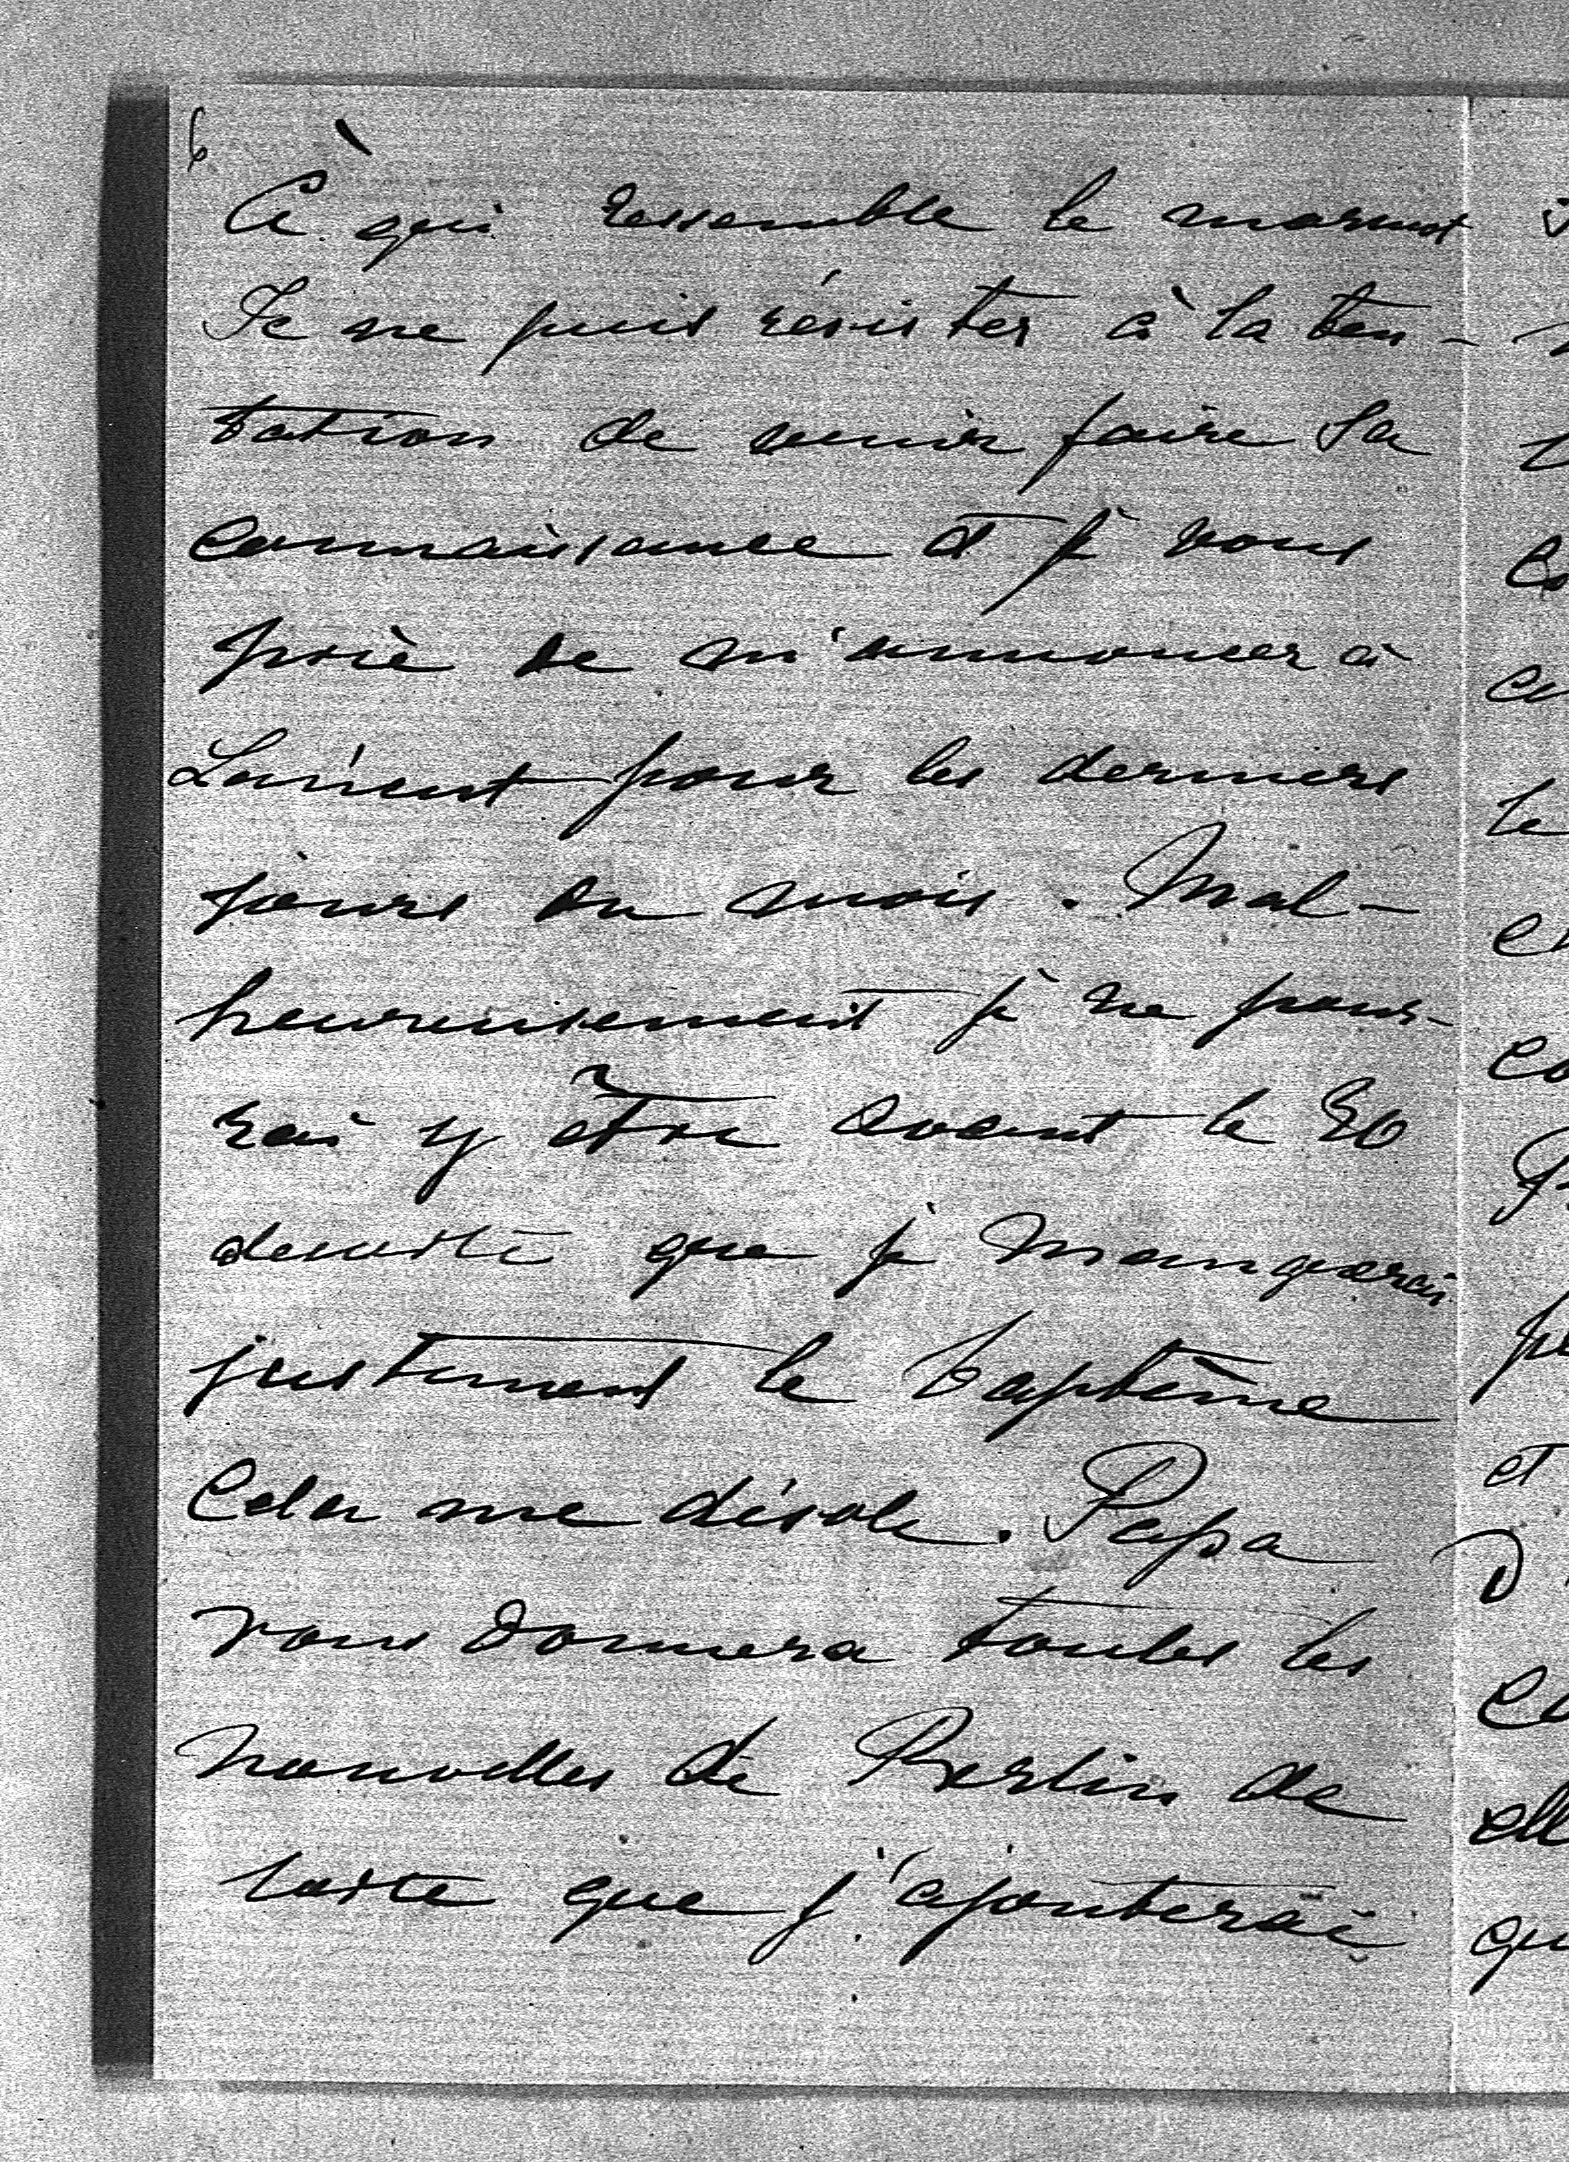 6
À qui ressemble le marmot
Je ne puis résister à la ten-
tation de venir faire sa
connaissance et je vous
prie de m'annoncer à
Laurent pour les derniers
jours du mois. Mal-
heureusement je ne pour-
rai y être avant le 30
de sorte que je manquerai
justement le baptême
Cela me désole. Papa
vous donnera toutes les
nouvelles de Berlin de
sorte que j'ajouterai